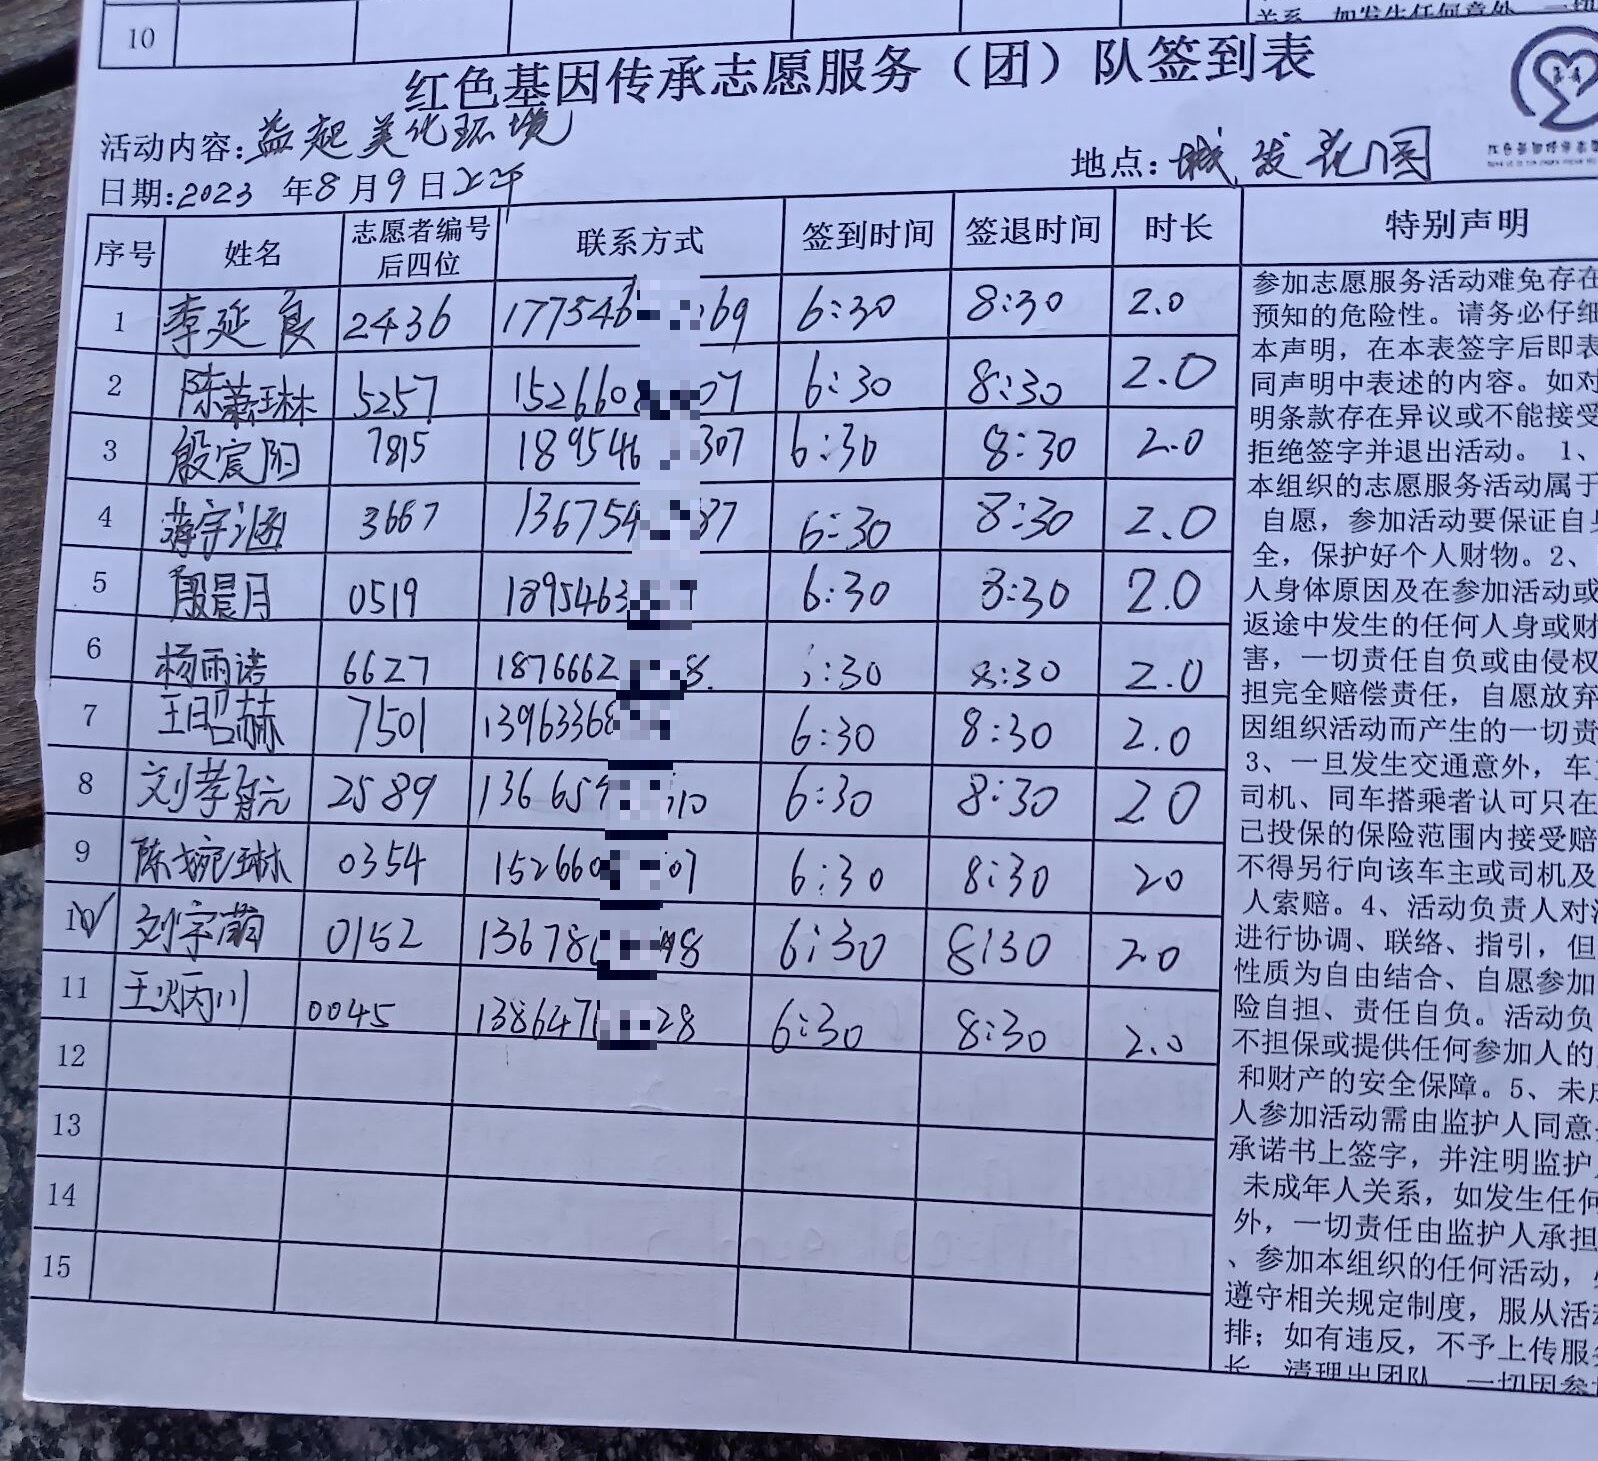 10
关系，如发生任何意外，一切
红色基因传承志愿服务（团）队签到表
活动内容:益起美化环境
地点:城发花园
日期:2023 年8月9日上午
序号 姓名 志愿者编号后四位 联系方式 签到时间 签退时间 时长 特别声明
1 李延良 2436 177546 69 6:30 8:30 2.0
2 陈蕭琳 5257 152660 07 6:30 8:30 2.0
3 殷宸阳 7815 189546 307 6:30 8:30 2.0
4 蒋宇涵 3667 136754 87 6:30 8:30 2.0
5 殷晨月 0519 1895463 6:30 8:30 2.0
6 杨雨诺 6627 1876662 8. :30 8:30 2.0
7 王昭赫 7501 13963368 6:30 8:30 2.0
8 刘孝元 2589 136659 10 6:30 8:30 20
9 陈婉琳 0354 152660 07 6:30 8:30 20
10 刘宇萌 0152 136786 98 6:30 8:30 2.0
11 王炳川 0045 138647 28 6:30 8:30 2.0
12
13
14
15
参加志愿服务活动难免存在
预知的危险性。请务必仔细
本声明，在本表签字后即表
同声明中表述的内容。如对
明条款存在异议或不能接受
拒绝签字并退出活动。1、
本组织的志愿服务活动属于
自愿，参加活动要保证自身
全，保护好个人财物。2、
人身体原因及在参加活动或
返途中发生的任何人身或财
害，一切责任自负或由侵权
担完全赔偿责任，自愿放弃
因组织活动而产生的一切责
3、一旦发生交通意外，车主
司机、同车搭乘者认可只在
已投保的保险范围内接受赔
不得另行向该车主或司机及
人索赔。4、活动负责人对活
进行协调、联络、指引，但
性质为自由结合、自愿参加
险自担、责任自负。活动负
不担保或提供任何参加人的
和财产的安全保障。5、未成
人参加活动需由监护人同意
承诺书上签字，并注明监护
未成年人关系，如发生任何
外，一切责任由监护人承担
、参加本组织的任何活动，
遵守相关规定制度，服从活动
排；如有违反，不予上传服务
长，清理出团队，一切因参加